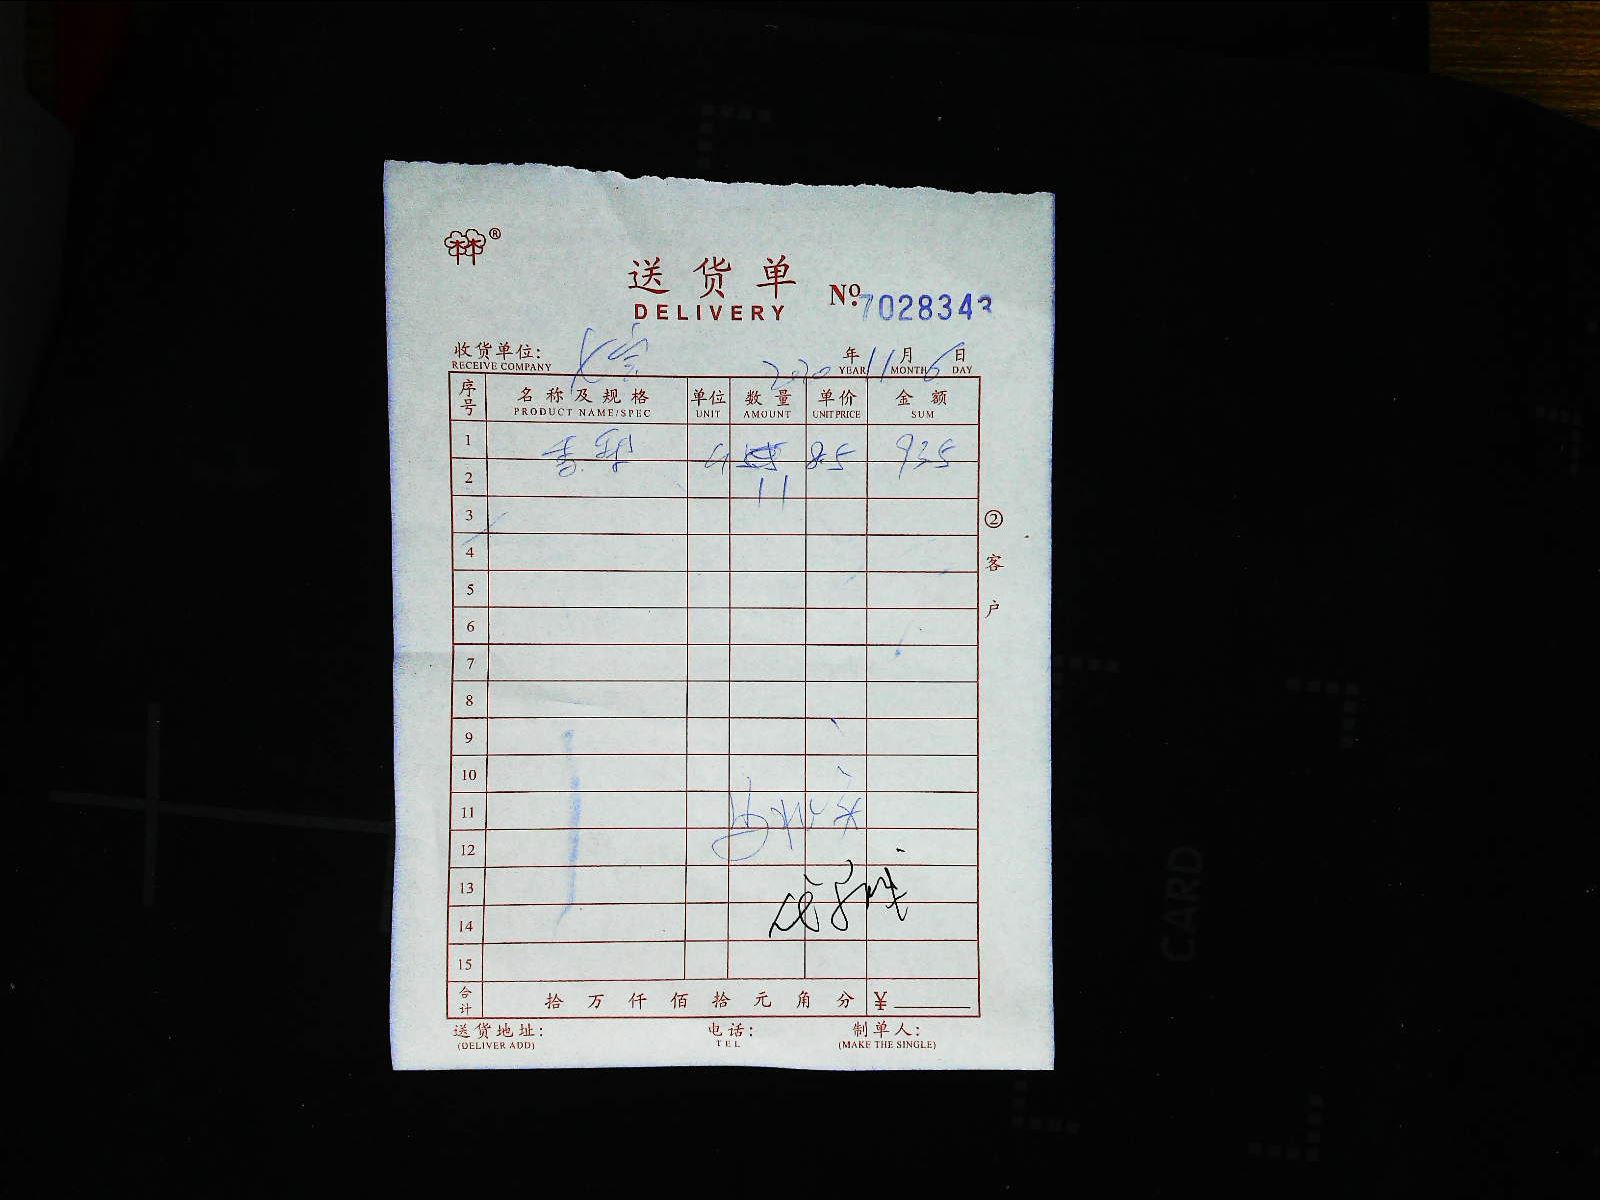 ®
送货单
DELIVERY
No. 7028343
收货单位:
RECEIVE COMPANY
2020 年 11 月 6 日
YEAR MONTH DAY
序号 名称及规格 单位 数量 单价 金额
PRODUCT NAME/SPEC UNIT AMOUNT UNIT PRICE SUM
1 85 935
2 11
3
4
5
6
7
8
9
10
11
12
13
14
15
② 客户
合计 拾 万 仟 佰 拾 元 角 分 ¥
送货地址: 电话: 制单人:
(DELIVER ADD) TEL (MAKE THE SINGLE)
CARD